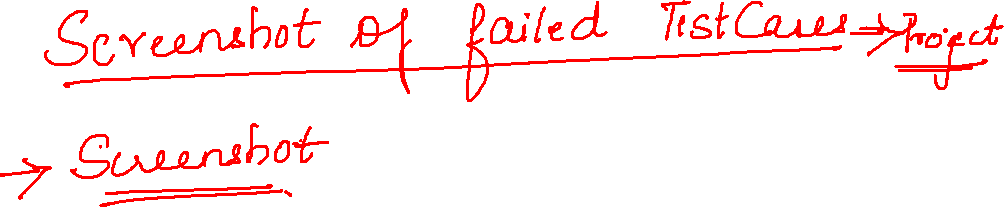 Screenshot of failed TestCases → Project
→ Screenshot